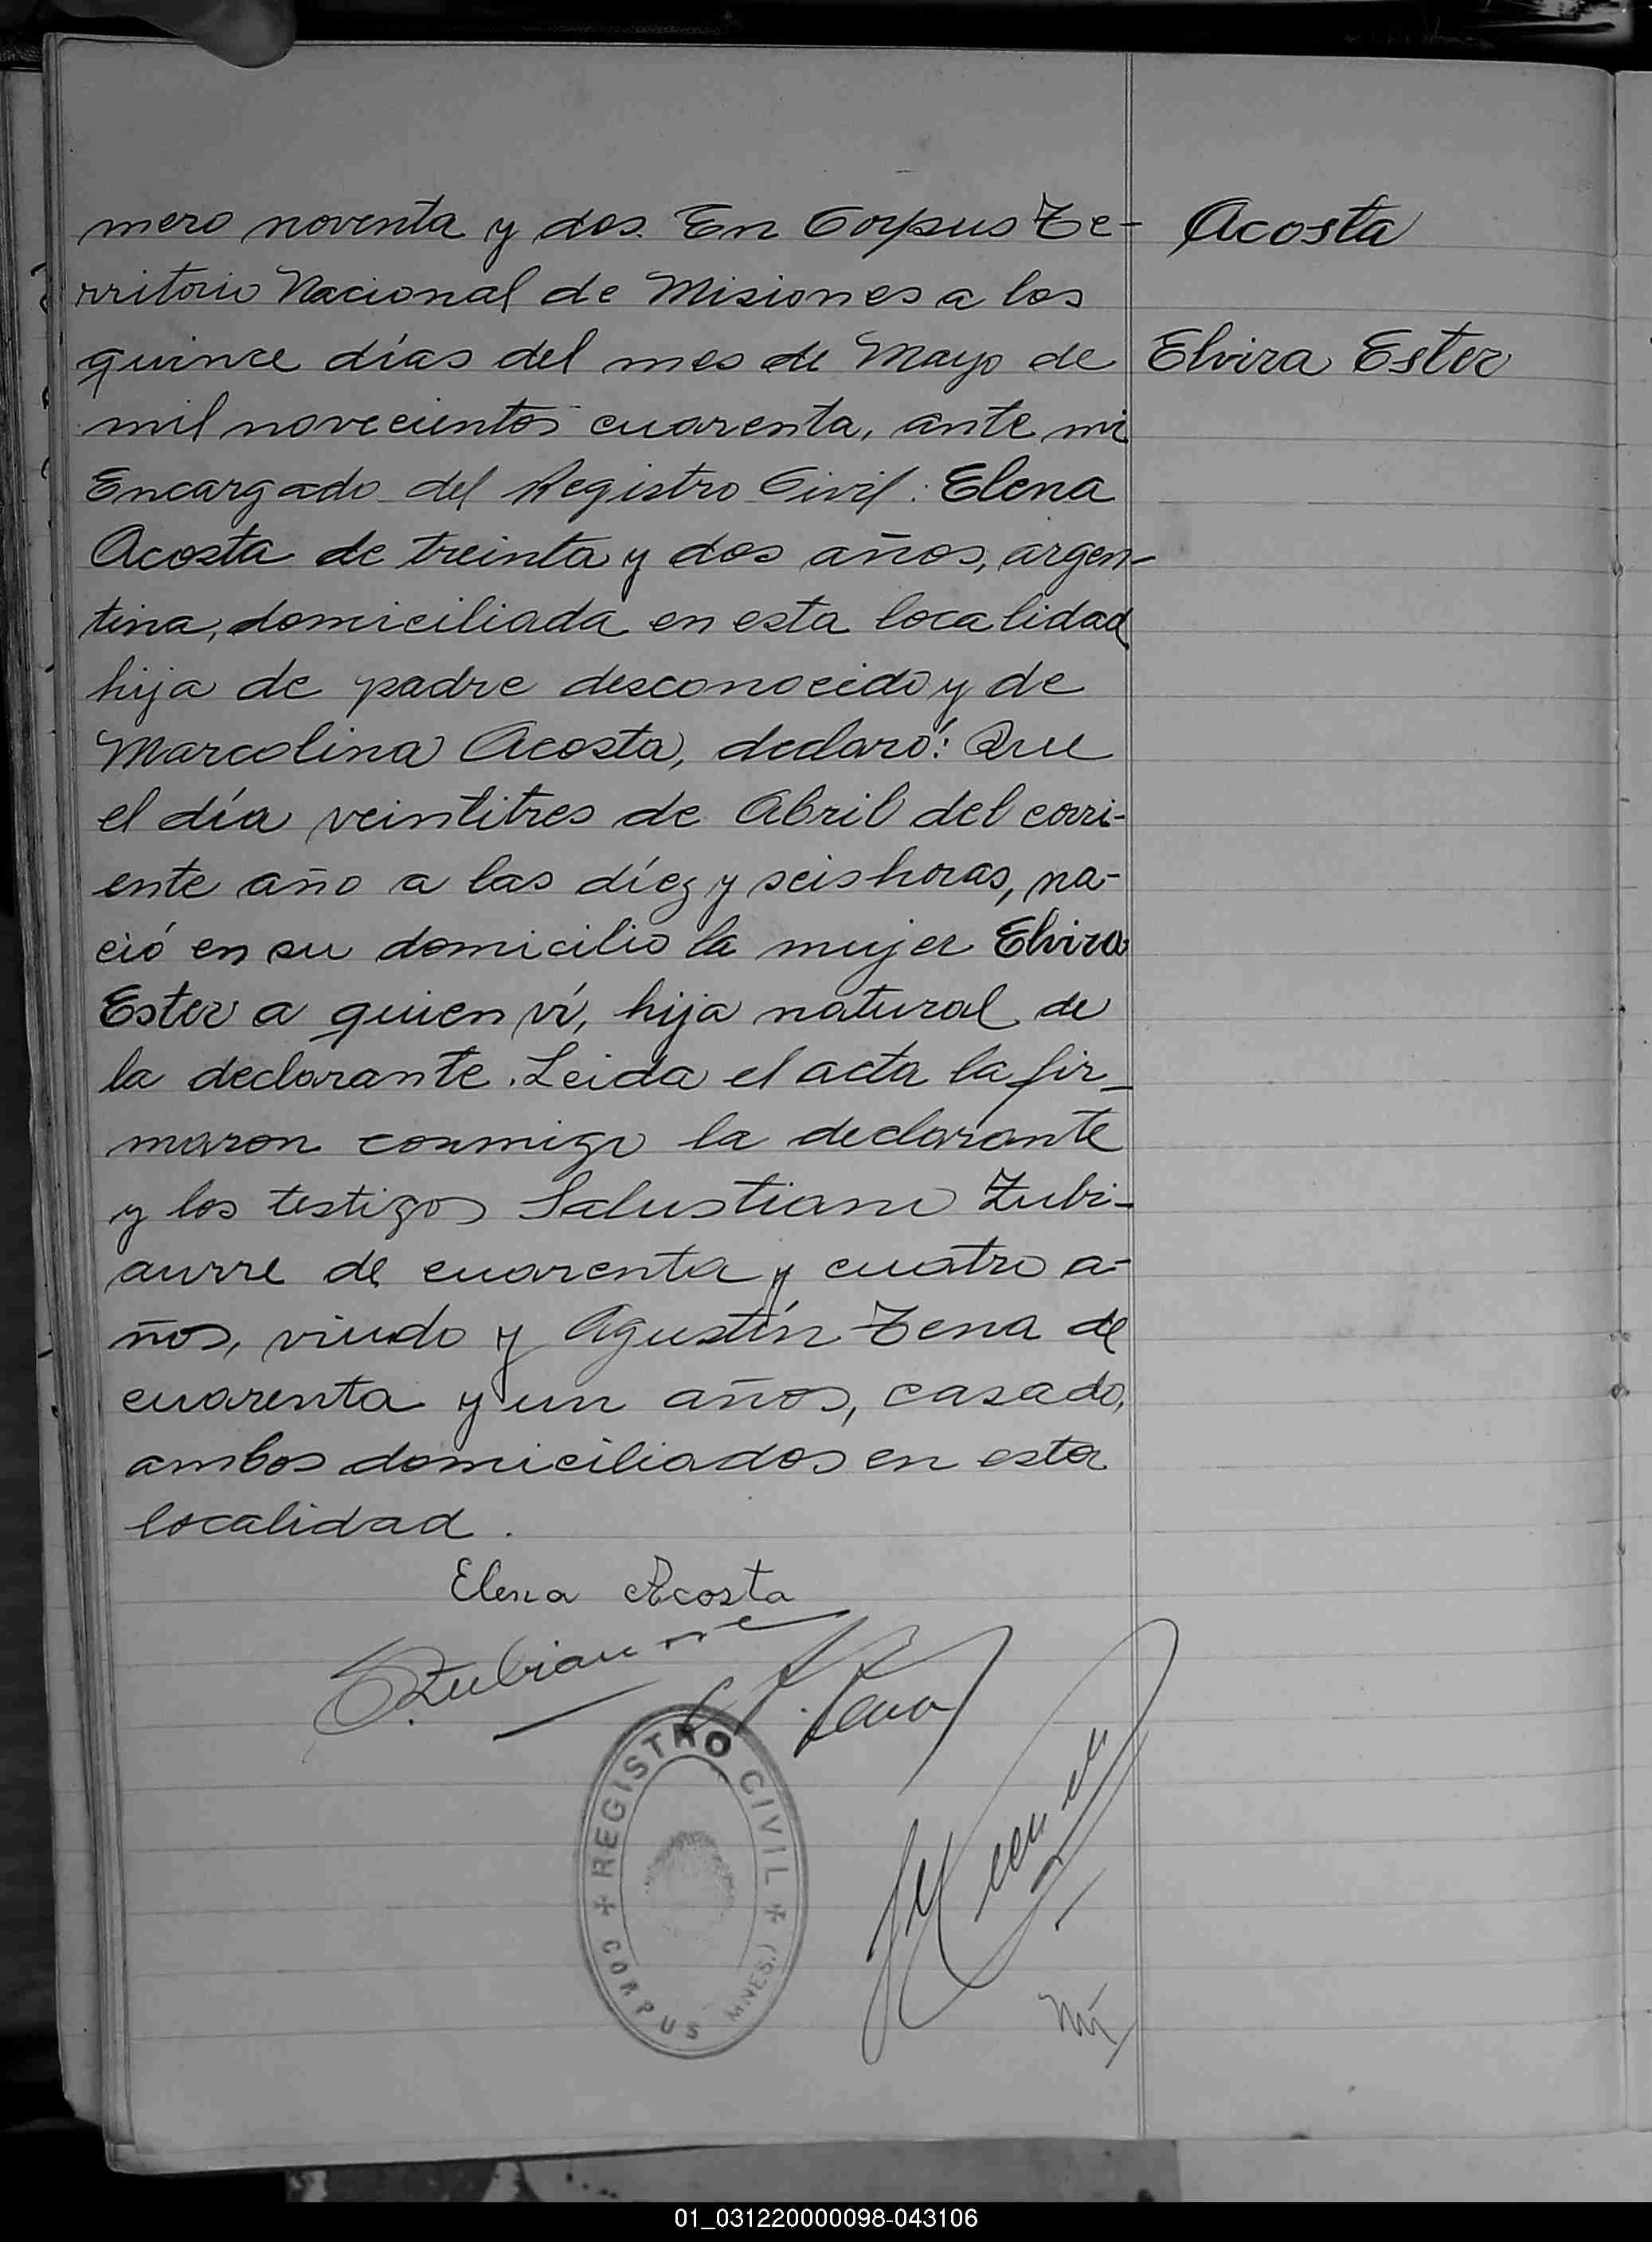 mero noventa y dos. En Corpus Te-
rritorio Nacional de Misiones a los
quince días del mes de Mayo de
mil novecientos cuarenta, ante mi
Encargado del Registro Civil: Elena
Acosta de treinta y dos años, argen-
tina, domiciliada en esta localidad
hija de padre desconocido y de
Marcolina Acosta, declaró: Que
el día veintitres de Abril del corri-
ente año a las díez y seis horas, na-
ció en su domicilio la mujer Elvira
Ester a quien ví, hija natural de
la declarante. Leida el acta la fir-
maron conmigo la declarante
y los testigos Salustiano Zubi-
aurre de cuarenta y cuatro a-
ños, viudo y Agustín Tena de
cuarenta y un años, casado,
ambos domiciliados en esta
localidad.
Acosta
Elvira Ester
Elena Acosta
S. Zubiaurre
Tena
REGISTRO CIVIL
CORPUS MNES.)
01_031220000098-043106